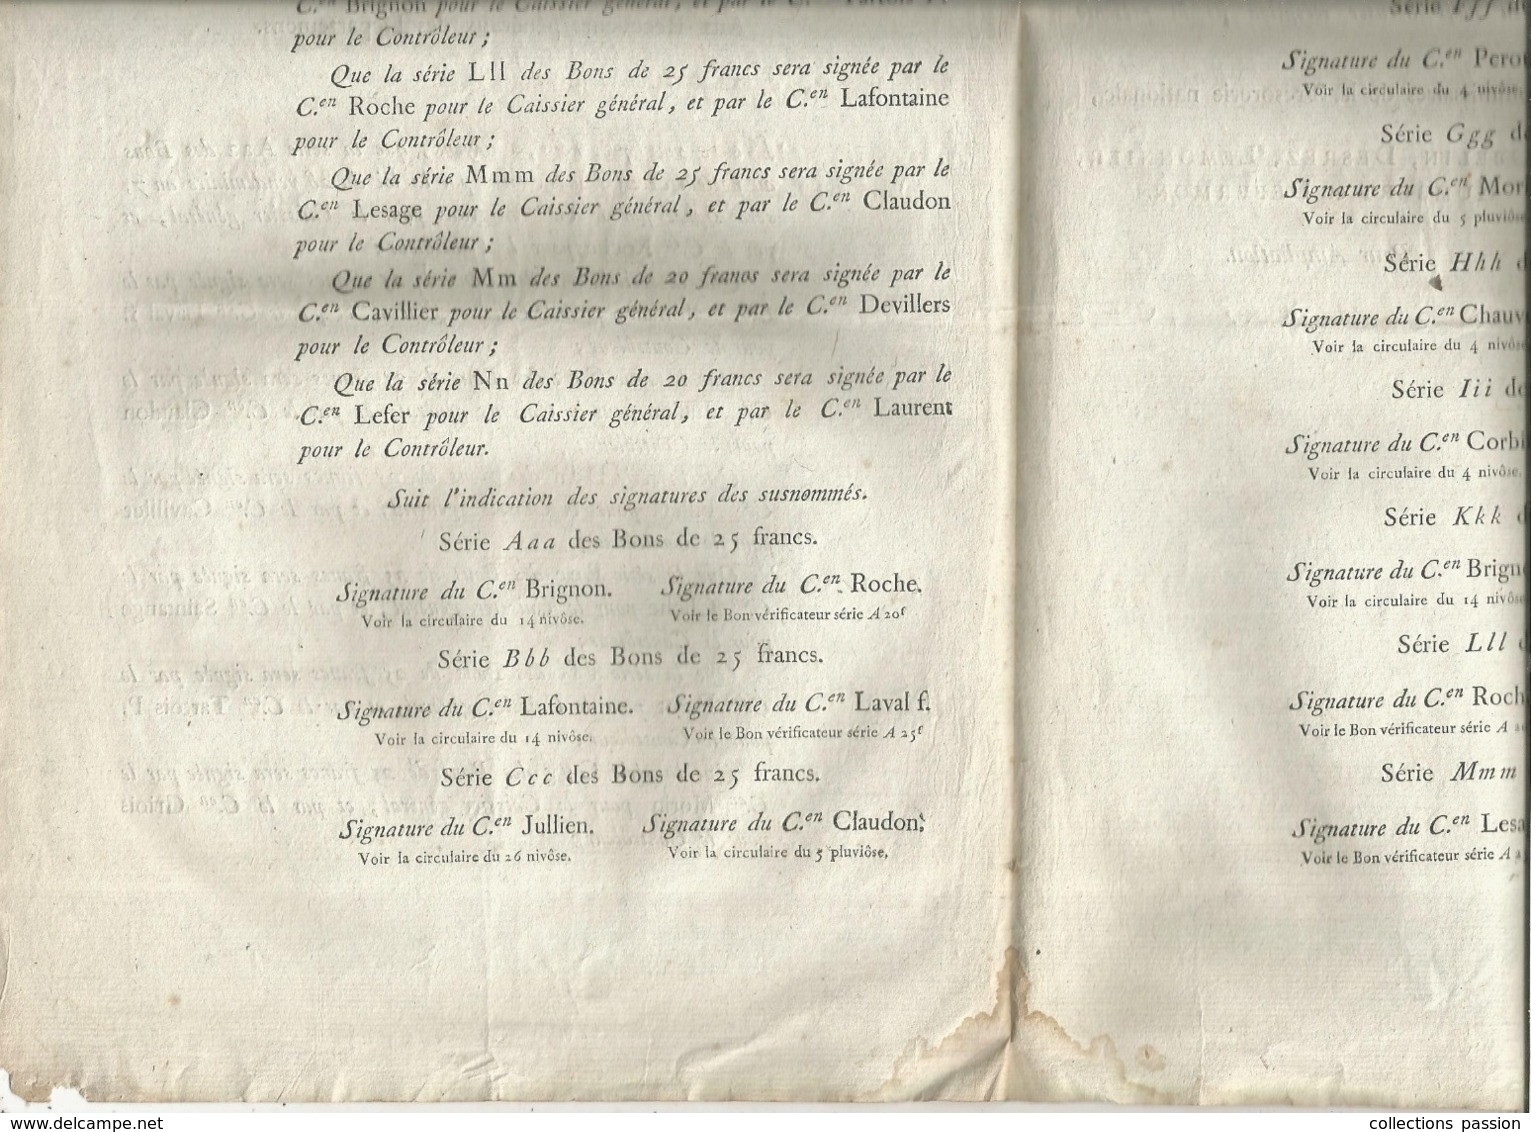 C.en Brignon pour le Caissier général, et par le C.en Tartois P.
pour le Contrôleur ;
Que la série Lll des Bons de 25 francs sera signée par le
C.en Roche pour le Caissier général, et par le C.en Lafontaine
pour le Contrôleur ;
Que la série Mmm des Bons de 25 francs sera signée par le
C.en Lesage pour le Caissier général, et par le C.en Claudon
pour le Contrôleur ;
Que la série Mm des Bons de 20 francs sera signée par le
C.en Cavillier pour le Caissier général, et par le C.en Devillers
pour le Contrôleur ;
Que la série Nn des Bons de 20 francs sera signée par le
C.en Lefer pour le Caissier général, et par le C.en Laurent
pour le Contrôleur.
Suit l'indication des signatures des susnommés.
Série Aaa des Bons de 25 francs.
Signature du C.en Brignon. Signature du C.en Roche.
Voir la circulaire du 14 nivôse. Voir le Bon vérificateur série A 20f
Série Bbb des Bons de 25 francs.
Signature du C.en Lafontaine. Signature du C.en Laval f.
Voir la circulaire du 14 nivôse. Voir le Bon vérificateur série A 25f
Série Ccc des Bons de 25 francs.
Signature du C.en Jullien. Signature du C.en Claudon.
Voir la circulaire du 26 nivôse. Voir la circulaire du 5 pluviôse.
Série Fff
Signature du C.en
Voir la circulaire du 4 nivôse.
Série Ggg
Signature du C.en
Voir la circulaire du 5 pluviôse
Série Hhh
Signature du C.en
Voir la circulaire du 4 nivôse
Série Iii
Signature du C.en
Voir la circulaire du 4 nivôse.
Série Kkk
Signature du C.en
Voir la circulaire du 14 nivôse
Série Lll
Signature du C.en
Voir le Bon vérificateur série A
Série Mmm
Signature du C.en
Voir le Bon vérificateur série A
www.delcampe.net
collections passion